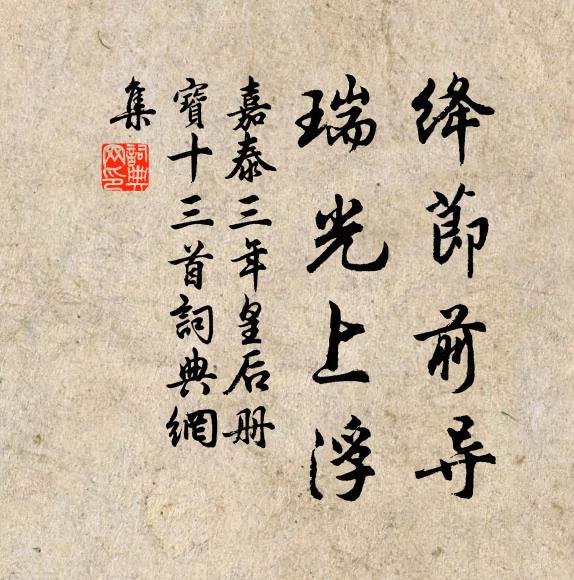 绛節前导
瑞光上浮
嘉泰三年皇后册
寶十三首詞典網
集
詞典
网印